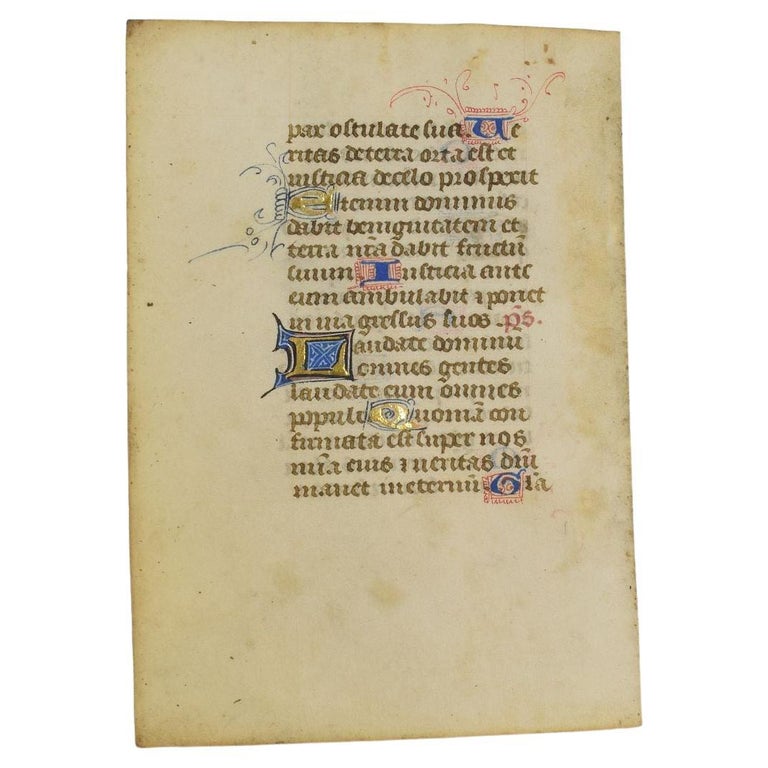 pax osculate sunt. Ve
ritas de terra orta est et
iusticia de celo prospexit
Etenim dominus
dabit benignitatem et
terra nr̄a dabit fructū
suum Iusticia ante
eum ambulabit ⁊ ponet
in uia gressus suos. ps̄.
Laudate dominū
omnes gentes
laudate eum om̄es
populi Quoniā con
firmata est super nos
mīa eius ⁊ ueritas dn̄i
manet in eternū Glā